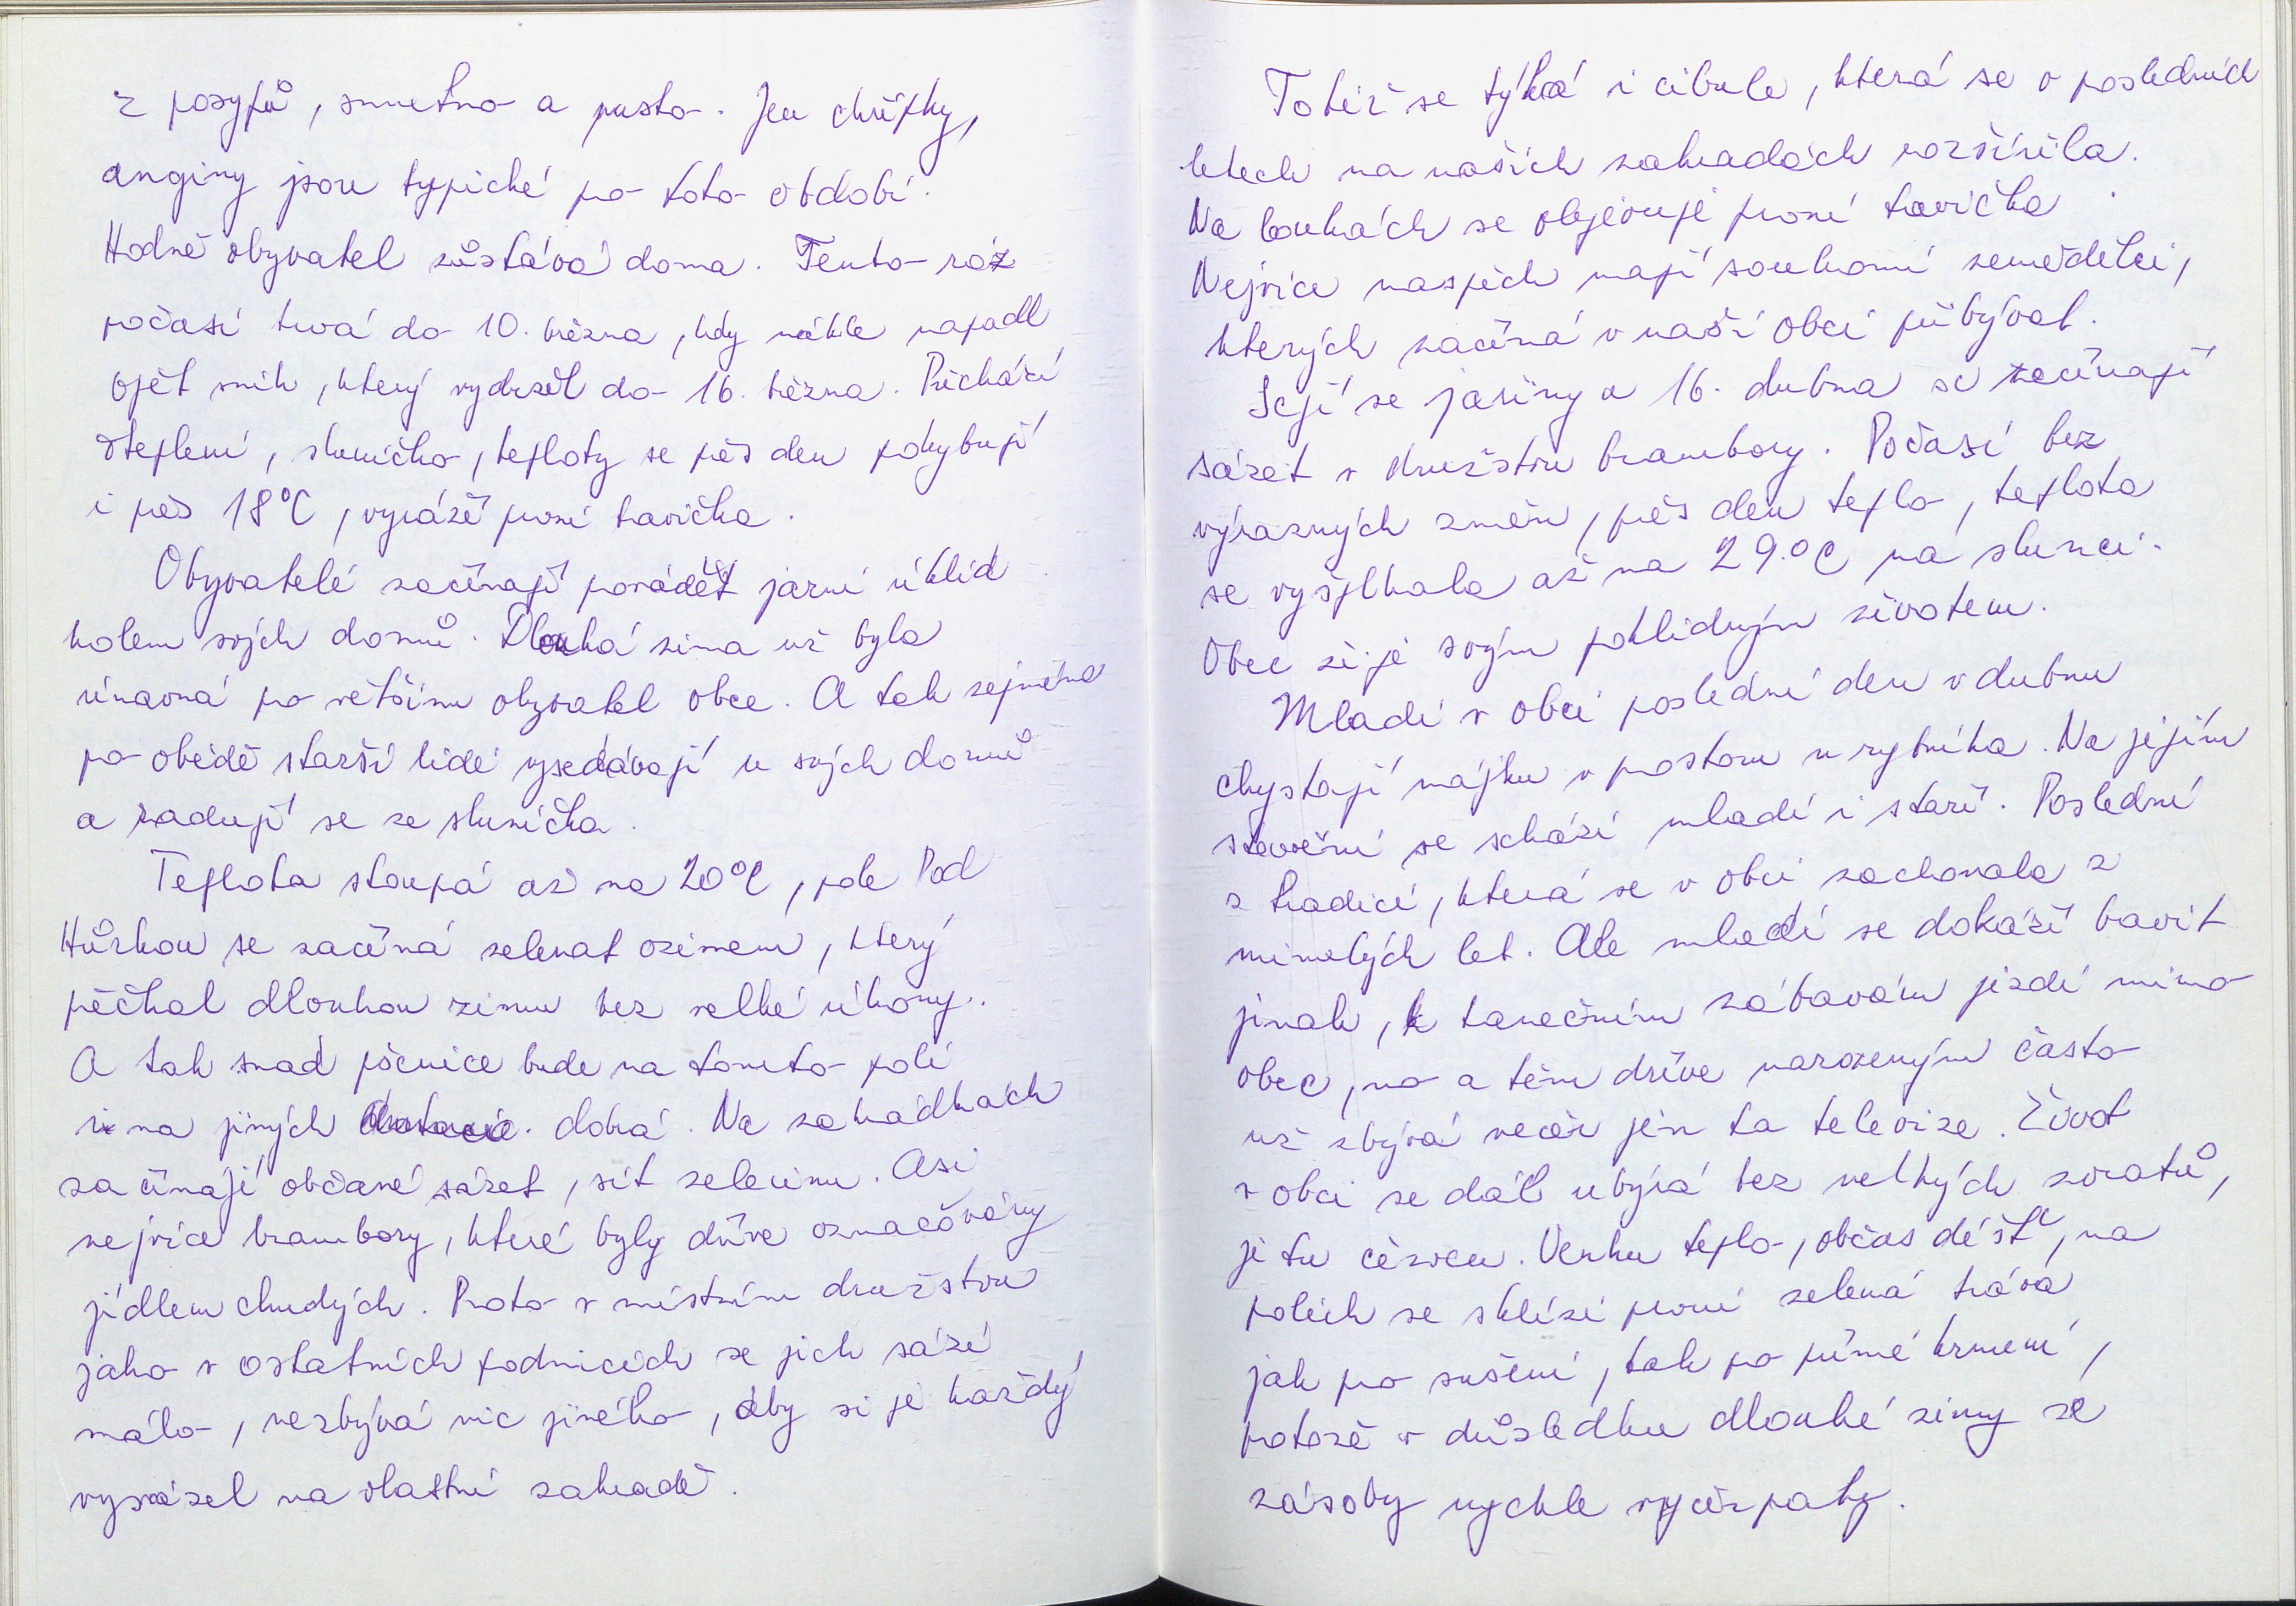 z posypů, smutno a pusto. Jen chřipky,
anginy jsou typické pro toto období.
Hodně obyvatel zůstává doma. Tento ráz
počasí trvá do 10. března, kdy náhle napadl
opět sníh, který vydržel do 16. března. Přichází
oteplení, sluníčko, teploty se přes den pohybují
i přes 18°C, vyráží první travička.
Obyvatelé začínají porádět jarní úklid
kolem svých domů. Dlouhá zima už byla
únavná pro většinu obyvatel obce. A tak zejména
po obědě starší lidé vysedávají u svých domů
a radují se ze sluníčka.
Teplota stoupá až na 20°C, pole Pod
Hůrkou se začíná zelenat ozimem, který
přečkal dlouhou zimu bez velké úhony.
A tak snad pšenice bude na tomto poli
i na jiných dobrá. Na zahrádkách
začínají občané sázet, sít zeleninu. Asi
nejvíce brambory, které byly dříve označovány
jídlem chudých. Proto v místním družstvu
jako v ostatních podnicích se jich sází
málo, nezbývá nic jiného, aby si je každý
vysázel na vlastní zahradě.
Totéž se týká i cibule, která se v posledních
letech na našich zahradách rozšířila.
Na loukách se objevuje první travička.
Nejvíce naspěch mají soukromí zemědělci,
kterých začíná v naší obci přibývat.
Sejí se jařiny a 16. dubna se začínají
sázet v družstvu brambory. Počasí bez
výrazných změn, přes den teplo, teplota
se vyšplhala až na 29.°C na slunci.
Obec žije svým poklidným životem.
Mladí v obci poslední den v dubnu
chystají májku v prostoru u rybníka. Na jejím
stavění se schází mladí i staří. Poslední
z tradicí, která se v obci zachovala z
minulých let. Ale mladí se dokáží bavit
jinak, k tanečním zábavám jezdí mimo
obec, no a těm dříve narozeným často
už zbývá večer jen ta televize. Život
v obci se dál ubírá bez velkých zvratů,
je tu červen. Venku teplo, občas déšť, na
polích se sklízí první zelená tráva
jak pro sušení, tak pro přímé krmení,
protože v důsledku dlouhé zimy se
zásoby rychle vyčerpaly.